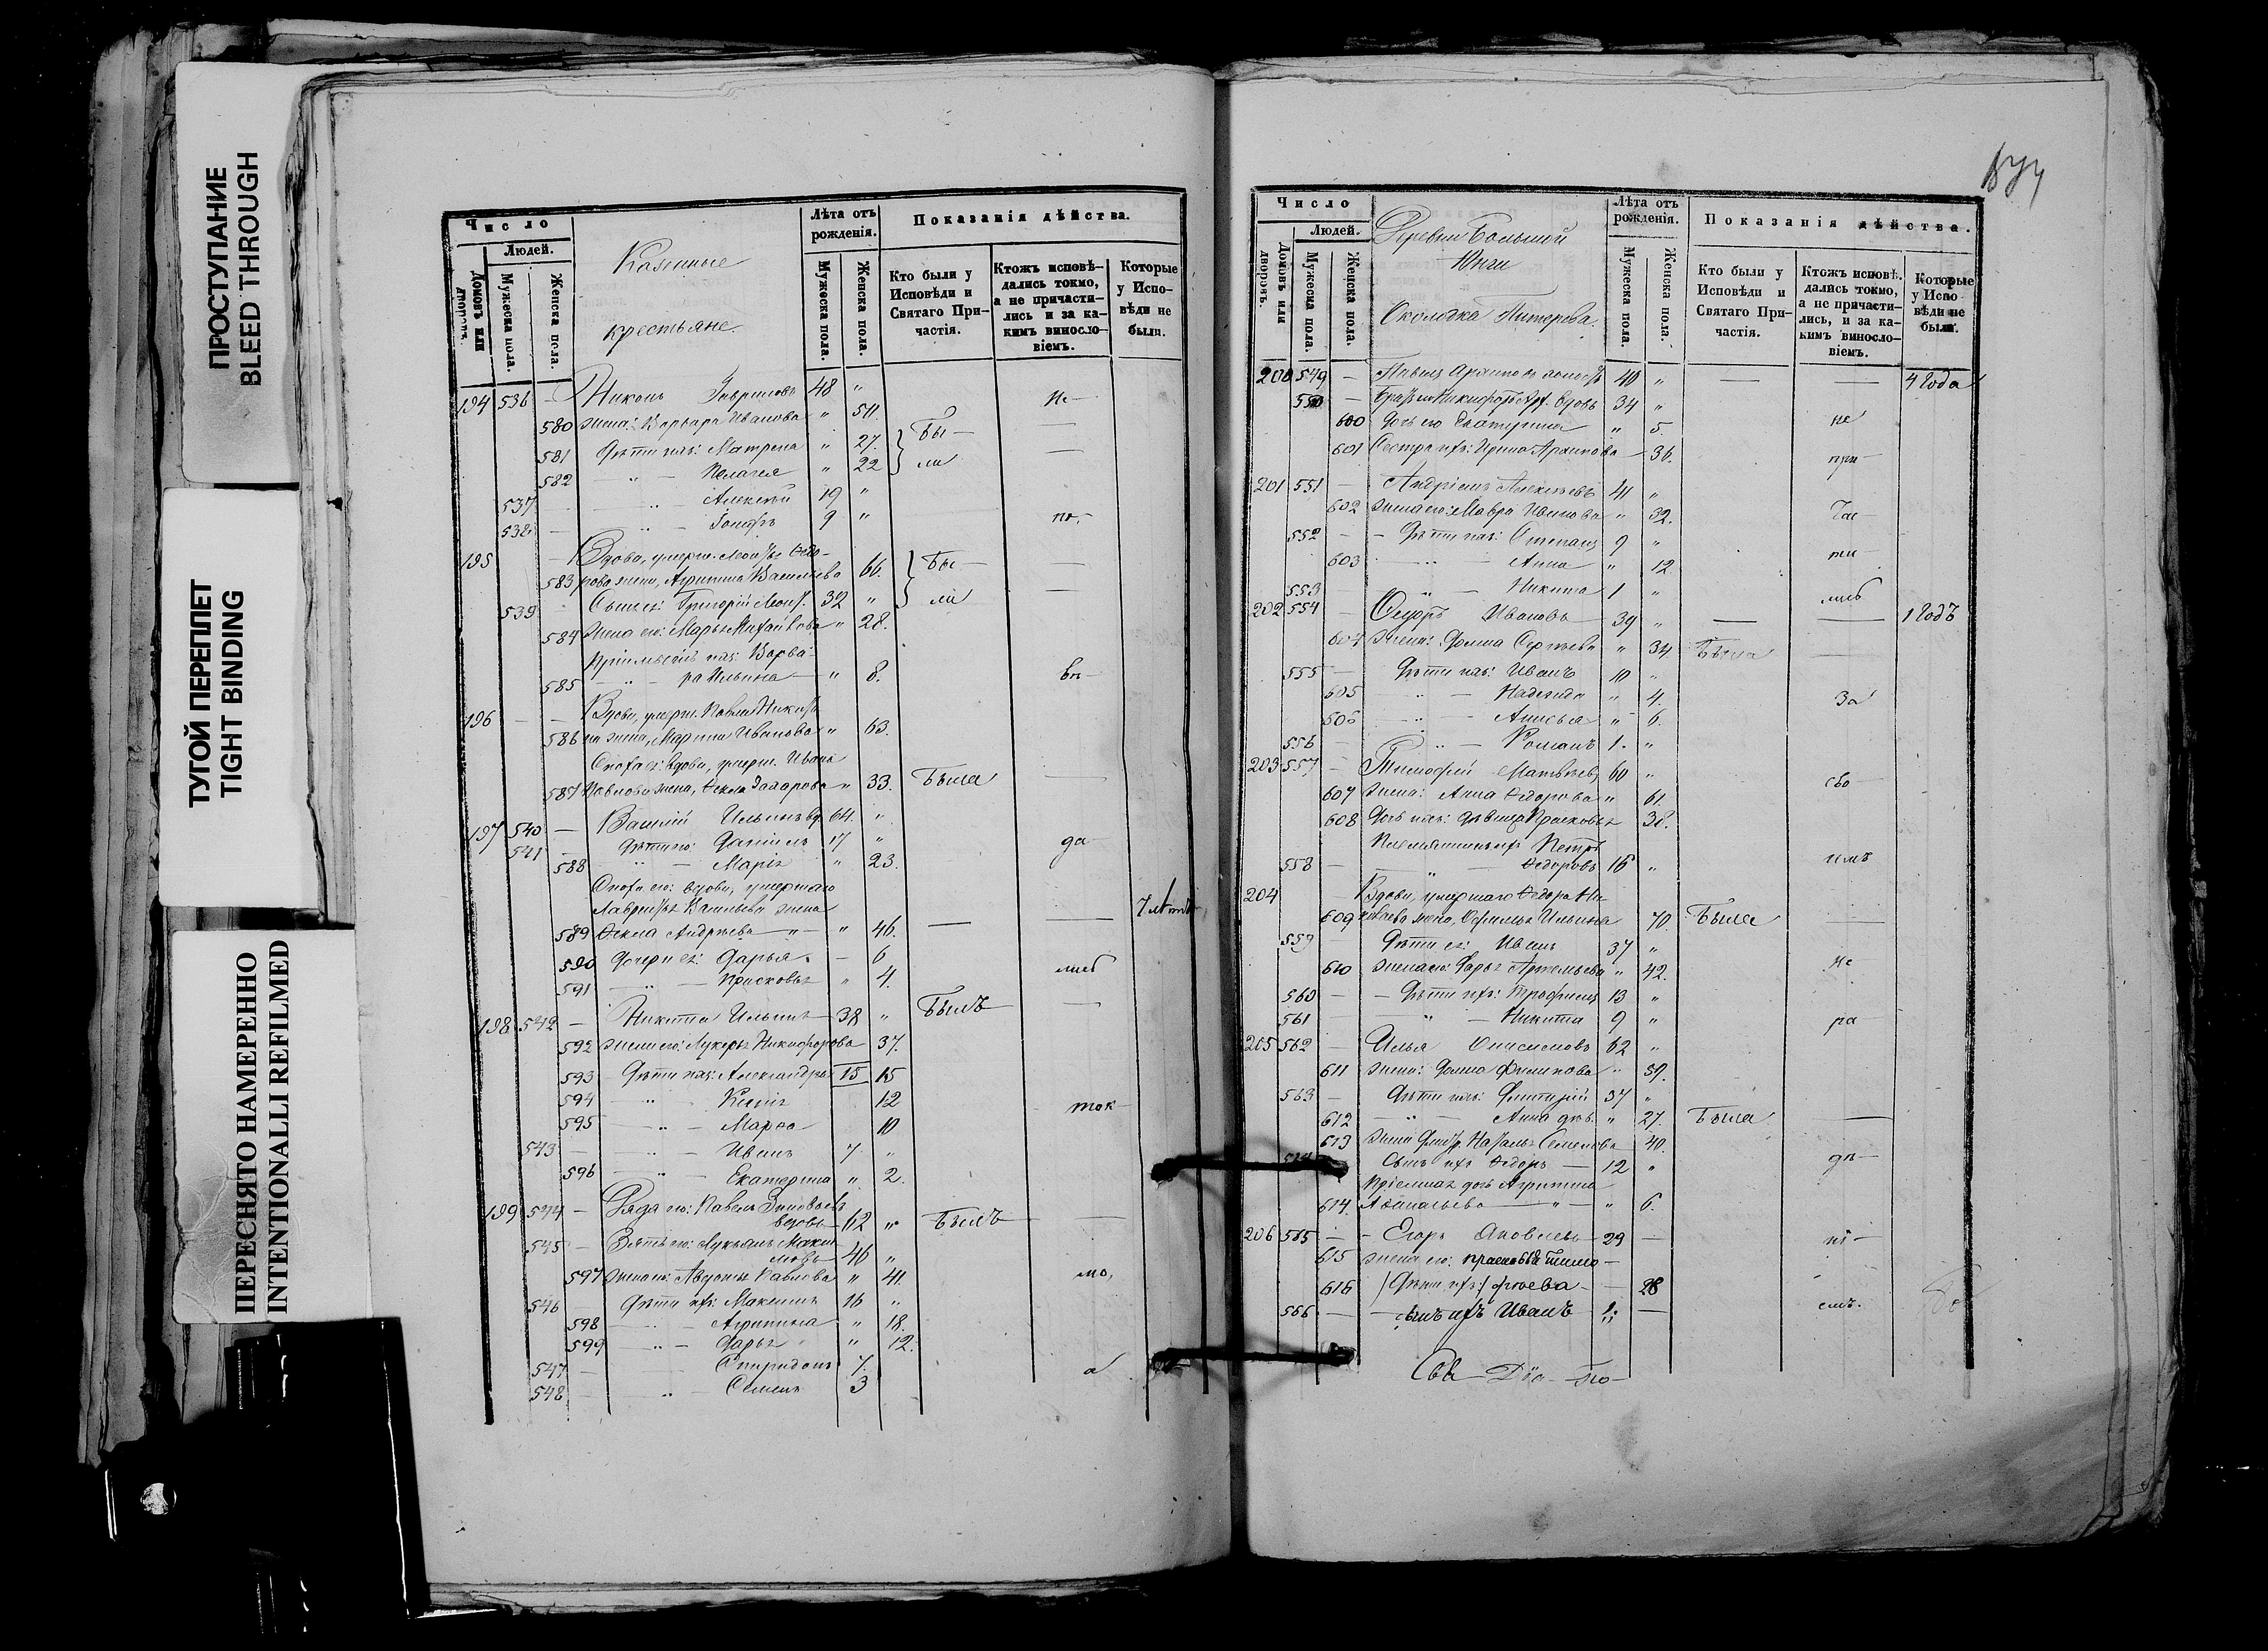 ПРОСТУПАНИЕ
BLEED THROUGH
ТУГОЙ ПЕРЕПЛЕТ
TIGHT BINDING
ПЕРЕСНЯТО НАМЕРЕННО
INTENTIONALLI REFILMED
Число
Людей.
Домовъ или дворовъ.
Мужеска пола.
Женска пола.
Казенные
крестьяне.
Лѣта отъ рожденія.
Мужеска пола.
Женска пола.
Показанія дѣйства.
Кто были у Исповѣди и Святаго Причастія.
Ктожъ исповѣ-
дались токмо,
а не причасти-
лись и за ка-
кимъ винosло-
віемъ.
Которые
у Испо-
вѣди не
были.
194 536 — Никонъ Гавриловъ 48 "  не-
580 жена: Варвара Ивановa " 511. Бы- —
581 Дѣти ихъ: Матрена " 27. —
582 " — Пелагея " 22 ли —
537 — " Алексѣй 19 "
538 — " — Іосифъ 9 " по-
195 — Вдова, умерш.
583 рова жена, Агрипина Васильева 66. Бы- —
539 Сынъ ея: Григорій 32 " ли —
584 Жена его: Марья Михайлова " 28.
Ихъ: Варва-
585 — " — ра Ильина — " 8. въ-
196 — — Вдова, умерш. Павла
586 жена, Марина Иванова " 63.
Сноха ея: вдова, умерш. Ивана
587 Павлова жена, Ѳекла Захарова " 33. Была —
197 540 — Василій Ильинъ вд. 64. "
541 Дѣти его: Даніилъ 17 " да-
588 — " — Марія " 23.
Сноха его: вдова, умершаго
Васильева жена
589 Ѳекла Андреева — " — " 46. — — 7 лѣтъ
590 Дочери ея: Дарья. — 6
591 — " — Прасковья " 4. лись
198 542 — Никита Ильинъ — 38 " Былъ —
592 жена его: Лукерья Никифорова 37.
593 Дѣти ихъ: Александра 15 15
594 — " — Ксенія 12 ток-
595 — " — Марѳа 10
543 — — " — Иванъ 7 "
596 — " — Екатерина " 2.
199 544 — Дядя его: Павелъ Зиновьевъ
вдовъ — 62 " Былъ —
545 — Зять его: Лукьянъ Макси-
мовъ — 46 "
597 жена его: Авдотья Павлова " 41. мо,
546 — Дѣти ихъ: Максимъ 16 "
598 — " — Агрипина " 18.
599 — " — Дарья " 12.
547 — Спиридонъ 7. а
548 — " — Семенъ 3
Число
Людей.
Домовъ или дворовъ.
Мужеска пола.
Женска пола.
Деревни Большой
Юнги
Околодка Питерова.
Лѣта отъ рожденія.
Мужеска пола.
Женска пола.
Показанія дѣйства.
Кто были у Исповѣди и Святаго Причастія.
Ктожъ исповѣ-
дались токмо,
а не причасти-
лись, и за ка-
кимъ винosло-
віемъ.
Которые
у Испо-
вѣди не
были.
200 549 — Архиповъ 40 " — — 4 года
550 — Никифоръ Арх. вдовъ 34 "
600 Дочь его Екатерина " 5. не
601 Сестра ихъ: Ирина Архипова — 36. при-
201 551 — Андріянъ Алексѣевъ 41 "
602 жена его: Мавра Иванова " 32. час-
552 — — Дѣти ихъ: Степанъ 9 "
603 — " — Анна " 12. ти-
553 " — Никита 1 " лись
202 554 — Ѳедоръ Ивановъ — 39 " — — 1 годъ
604 Жена: Домна Сергѣева " 34. Была —
555 — Дѣти ихъ: Иванъ 10 "
605 — " — Надежда " 4. за
606 — " — Анисья " 6.
556 — " — Романъ 1. "
203 557 — Тимофей Матвѣевъ 60 " сбо-
607 Жена: Анна Ѳедорова " 61.
608 Дочь ихъ: дѣвица Прасковья 38.
Племянникъ ихъ Петръ
558 — — " — Ѳедоровъ 16 " имъ
204 Вдова, умершаго Ѳедора Ни-
609 колаева жена, Ильина 70. Была —
559 — Дѣти ея: Иванъ 37 "
610 жена его: Дарья Артемьева " 42. не-
560 — — Дѣти ихъ: Трофимъ 13 "
561 — " — Никита 9 " ра-
205 562 — Илья Онисимовъ 62 "
611 жена: Домна Филипова " 59.
563 — Дѣти ихъ: Дмитрій 37 "
612 — " — Анна дѣв. " 27. Была —
613 Жена Дмитр. Наталья Семенова 40.
Сынъ ихъ Ѳедоръ — 12 " дѣ-
дочь Агрипина
614. Аѳанасьева — " — " 6.
206 565 — — Егоръ Яковлевъ — 29 — ні-
615 жена его: Прасковья Тимо-
616 / Дѣти ихъ: / фѣева — — 28
566 — — сынъ ихъ Иванъ 1. — емъ.
Свя- Діа- по-